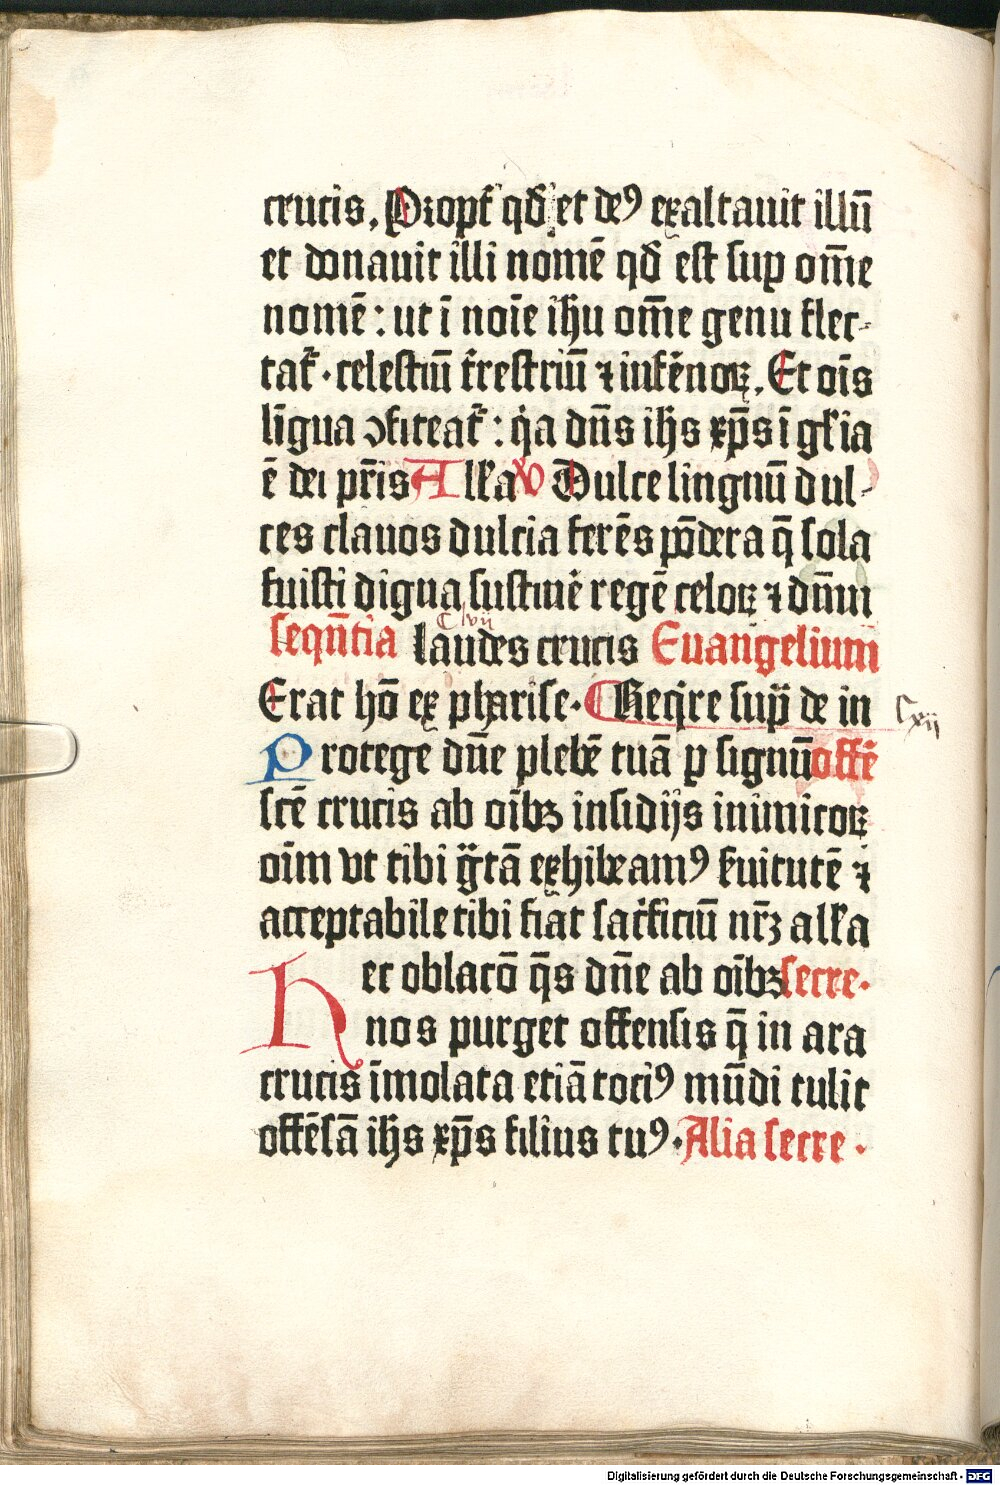 crucis. Propt̃ qđ et deꝰ exaltauit illū
et donauit illi nomē qđ est sup om̄e
nomē : ut ī noīe ih̄u om̄e genu flec-
tat̃ · celestiū t̃restriū ⁊ infēnoꝝ. Et oīs
līgua ꝯfiteat̃ : q̇a dn̄s ih̄s xp̄s ī gl̄ia
ē dei pr̄is Alla ꝟ Dulce lingnū dul-
ces clauos dulcia ferēs pōdera q̄ sola
fuisti digna sustinē regē celoꝝ ⁊ dn̄m
Clvii
seqn̄tia laudes crucis Euangelium
Erat hō ex pharise · Reqͥre supͣ de in
Cxii
Protege dn̄e plebē tuā p signū offē
scē crucis ab oībꝫ insidijs inimicoꝝ
oīm vt tibi gͣtā exhibeamꝰ s̄uitutē ⁊
acceptabile tibi fiat sac̃ficiū nr̄ꝫ alla
Hec oblacō q̄s dn̄e ab oībꝫ secre·
nos purget offensis q̄ in ara
crucis īmolata etiā tociꝰ mūdi tulit
offēsā ih̄s xp̄s filius tuꝰ · Alia secre ·
Digitalisierung gefördert durch die Deutsche Forschungsgemeinschaft - DFG